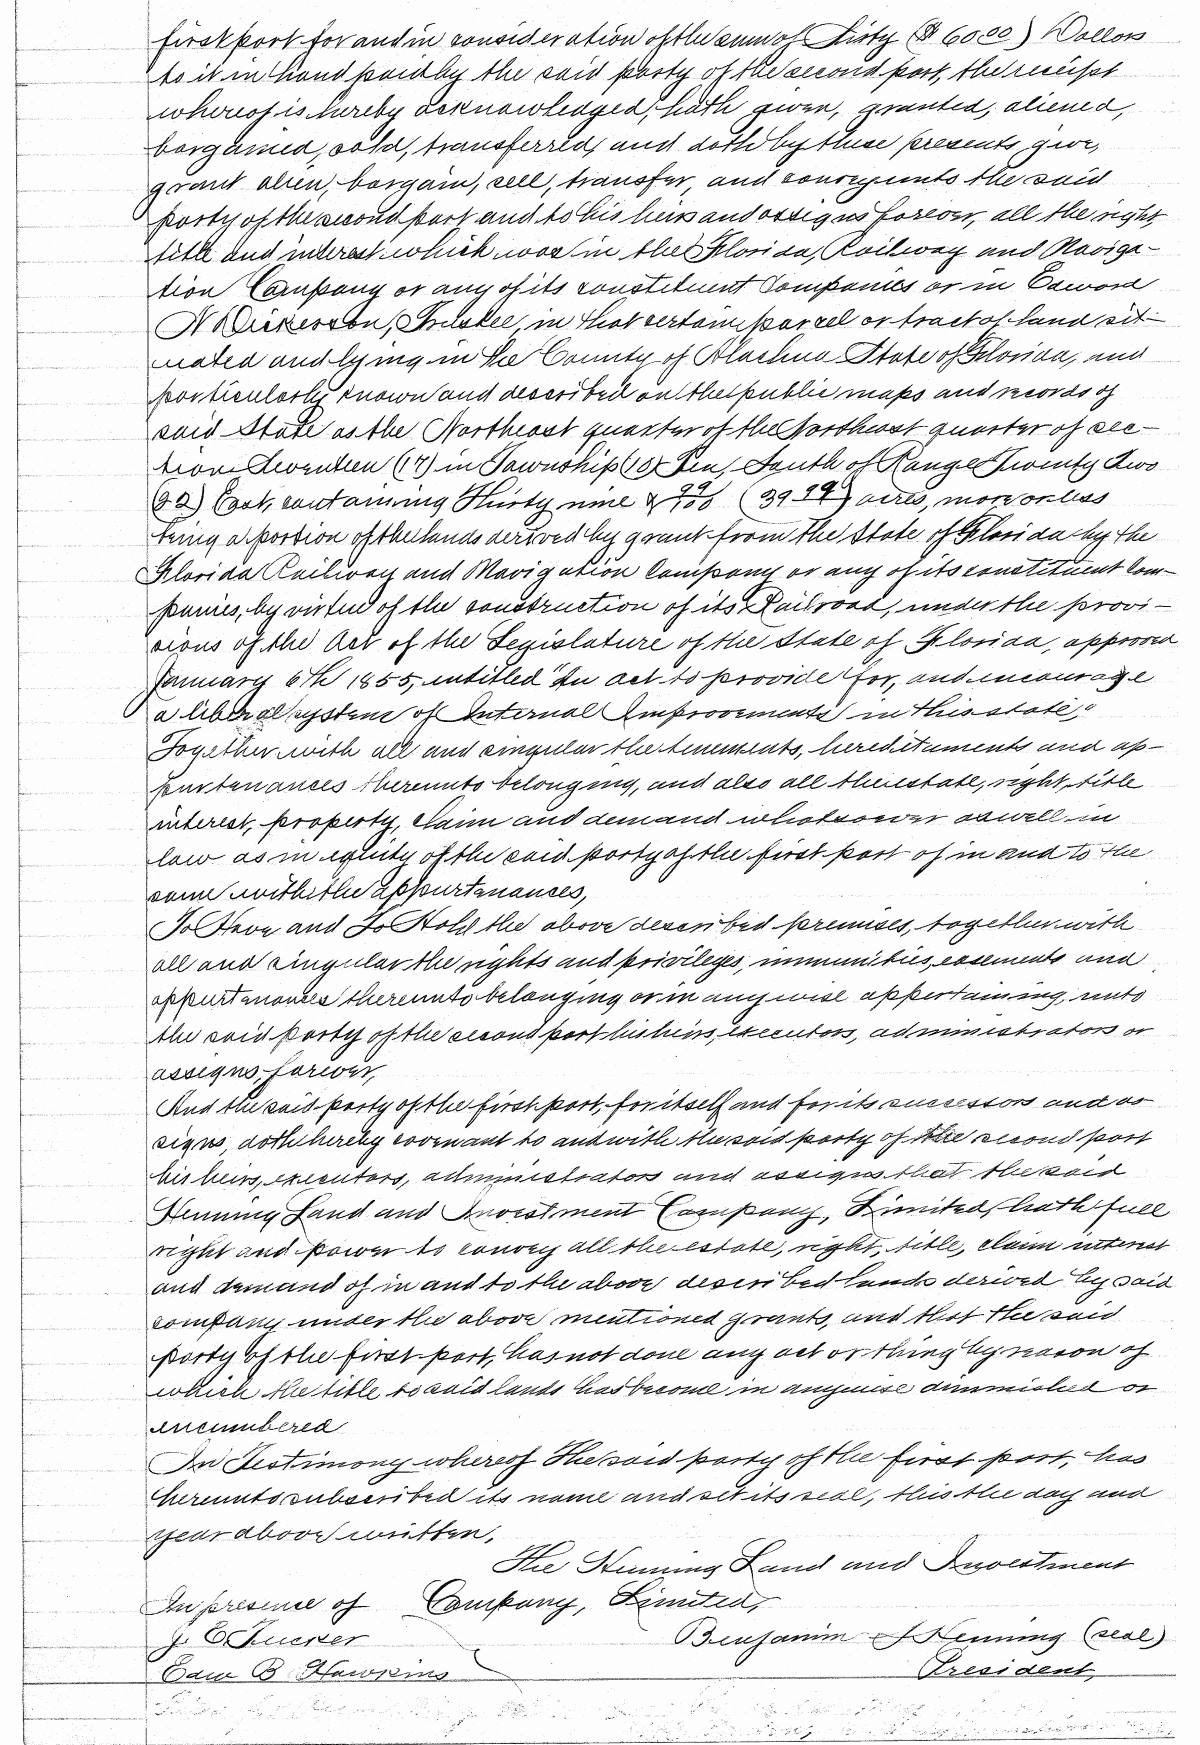 first part for and in consideration of the sum of Sixty ($60.00) Dollars
to it in hand paid by the said party of the second part, the receipt
whereof is hereby acknowledged, hath given, granted, aliened,
bargained, sold, transferred, and doth by these presents, give,
grant alien, bargain, sell, transfer, and convey unto the said
party of the second part and to his heirs and assigns forever, all the right,
title and interest which was in the Florida, Railway and Naviga-
tion Company or any of its constituent Companies or in Edward
N Dickerson, Trustee, in that certain parcel or tract of land sit-
uated and lying in the County of Alachua State of Florida, and
particularly known and described on the public maps and records of
said State as the Northeast quarter of the Northeast quarter of sec-
tion Seventeen (17) in Township (10) Ten, South of Range Twenty Two
(22) East, containing Thirty nine & 99/100 (39 99) acres, more or less
being a portion of the lands derived by grant from the State of Florida by the
Florida Railway and Navigation Company or any of its constituent Com-
panies, by virtue of the construction of its Railroad, under the provi-
sions of the Act of the Legislature of the State of Florida, approved
January 6th 1855, entitled "An act to provide for, and encourage
a liberal system of Internal Improvements in this state,"
Together with all and singular the tenements, hereditaments and ap-
purtenances thereunto belonging, and also all the estate, right, title
interest, property, claim and demand whatsoever as well in
law as in equity of the said party of the first part of in and to the
same with the appurtenances,
To Have and To Hold the above described premises, together with
all and singular the rights and privileges, immunities, easements and
appurtenances thereunto belonging or in any wise appertaining, unto
the said party of the second part his heirs, executors, administrators or
assigns, forever,
And the said party of the first part, for itself and for its successors and as
signs, doth hereby covenant to and with the said party of the second part
his heirs, executors, administrators and assigns that the said
Henning Land and Investment Company, Limited, hath full
right and power to convey all the estate, right, title, claim interest
and demand of in and to the above described lands derived by said
company under the above mentioned grants, and that the said
party of the first part, has not done any act or thing by reason of
which the title to said lands has become in anywise diminished or
encumbered
In Testimony whereof The said party of the first part, has
hereunto subscribed its name and set its seal, this the day and
year above written,
The Henning Land and Investment
In presence of Company, Limited,
J. E. Benjamin Henning (seal)
Edw B Hawkins President,